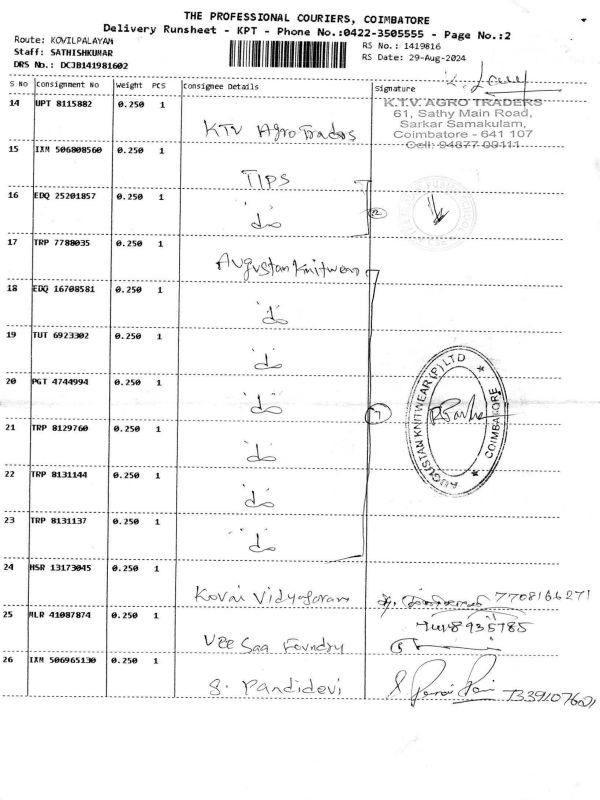 THE PROFESSIONAL COURIERS, COIMBATORE
Delivery Runsheet - KPT - Phone No.:0422-3505555 - Page No.:2
Route: KOVILPALAYAM
RS No.: 1419816
Staff: SATHISHKUMAR
RS Date: 29-Aug-2024
DRS No.: DCJB141981602
S No Consignment No Weight PCS Consignee Details Signature
14 UPT 8115882 0.250 1
KTV Agro Traders
K.T.V. AGRO TRADERS
61, Sathy Main Road,
Sarkar Samakulam,
Coimbatore - 641 107
Cell: 94877 09111
15 IXM 506808560 0.250 1
TIPS
16 EDQ 25201857 0.250 1
do
17 TRP 7788035 0.250 1
Augustan Knitwear
18 EDQ 16708581 0.250 1
do
19 TUT 6923302 0.250 1
do
20 PGT 4744994 0.250 1
do
7
AUGUSTAN KNITWEAR (P) LTD
COIMBATORE
21 TRP 8129760 0.250 1
do
22 TRP 8131144 0.250 1
do
23 TRP 8131137 0.250 1
do
24 HSR 13173045 0.250 1
Kovai Vidyasaram 7708166271
25 MLR 41087874 0.250 1
Vee Saa Foundry
26 IXM 506965130 0.250 1
S. Pandidevi